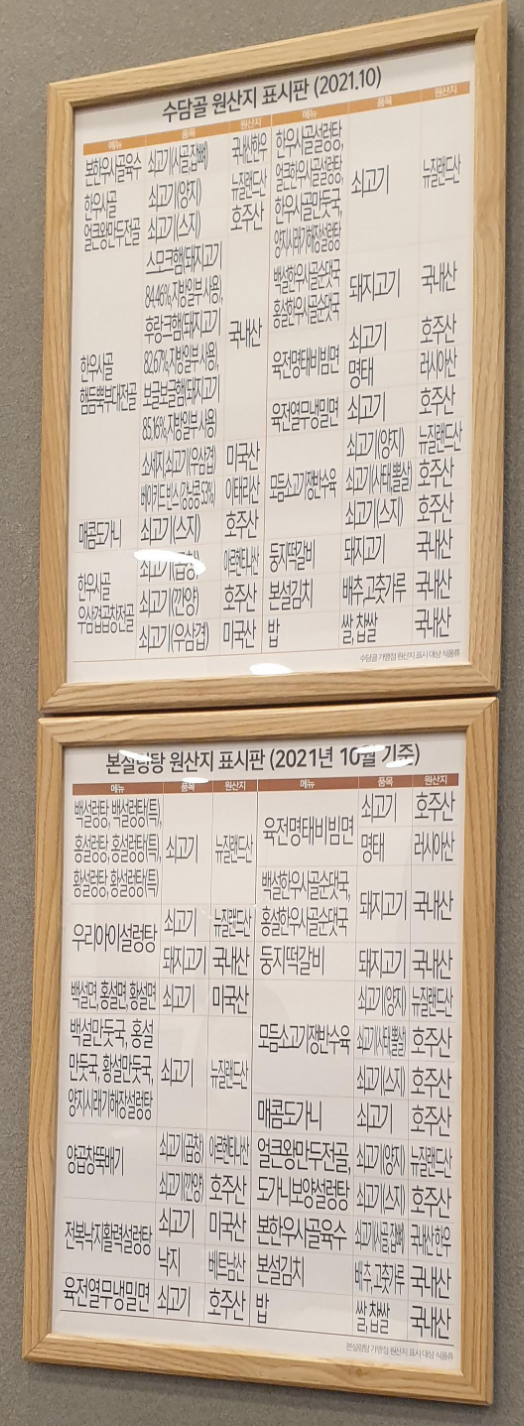 수담골 원산지 표시판 (2021.10)
메뉴 품목 원산지
본한우사골육수 쇠고기(사골,잡뼈) 국내산한우
한우사골 쇠고기(양지) 뉴질랜드산
얼큰왕만두전골 쇠고기(스지) 호주산
스모크햄(돼지고기
84.46%,지방일부사용),
후랑크햄(돼지고기 국내산
82.67%,지방일부사용),
한우사골
햄듬뿍부대전골 보글보글햄(돼지고기
85.16%,지방일부사용
소세지:쇠고기(우삼겹) 미국산
베이키드 빈스(강낭콩53%) 이태리산
매콤도가니 쇠고기(스지) 호주산
쇠고기(곱창) 아르헨티나산
한우사골 쇠고기(깐양) 호주산
우삼겹곱창전골 쇠고기(우삼겹) 미국산
메뉴 품목 원산지
한우사골설렁탕,
얼큰한우사골설렁탕, 쇠고기 뉴질랜드산
한우사골만둣국,
양지시래기해장설렁탕
백설한우사골순댓국 돼지고기 국내산
홍설한우사골순댓국
육전명태비빔면 쇠고기 호주산
명태 러시아산
육전열무냉밀면 쇠고기 호주산
쇠고기(양지) 뉴질랜드산
모듬소고기쟁반수육 쇠고기(사태,뽈살) 호주산
쇠고기(스지) 호주산
둥지떡갈비 돼지고기 국내산
본설김치 배추,고춧가루 국내산
밥 쌀, 찹쌀 국내산
수담골 가맹점 원산지 표시 대상 식품류
본설렁탕 원산지 표시판 (2021년 10월 기준)
메뉴 품목 원산지
백설렁탕, 백설렁탕(특),
홍설렁탕, 홍설렁탕(특), 쇠고기 뉴질랜드산
황설렁탕, 황설렁탕(특)
우리아이설렁탕 쇠고기 뉴질랜드산
돼지고기 국내산
백설면, 홍설면, 황설면 쇠고기 미국산
백설만둣국, 홍설
만둣국, 황설만둣국, 쇠고기 뉴질랜드산
양지시래기해장설렁탕
양곱창뚝배기 쇠고기(곱창) 아르헨티나산
쇠고기(깐양) 호주산
전복낙지활력설렁탕 쇠고기 미국산
낙지 베트남산
육전열무냉밀면 쇠고기 호주산
메뉴 품목 원산지
육전명태비빔면 쇠고기 호주산
명태 러시아산
백설한우사골순댓국, 돼지고기 국내산
홍설한우사골순댓국
둥지떡갈비 돼지고기 국내산
쇠고기(양지) 뉴질랜드산
모듬소고기쟁반수육 쇠고기(사태,뽈살) 호주산
쇠고기(스지) 호주산
매콤도가니 쇠고기 호주산
얼큰왕만두전골, 쇠고기(양지) 뉴질랜드산
도가니보양설렁탕 쇠고기(스지) 호주산
본한우사골육수 쇠고기(사골,잡뼈) 국내산 한우
본설김치 배추,고춧가루 국내산
밥 쌀,찹쌀 국내산
본설렁탕 가맹점 원산지 표시 대상 식품류